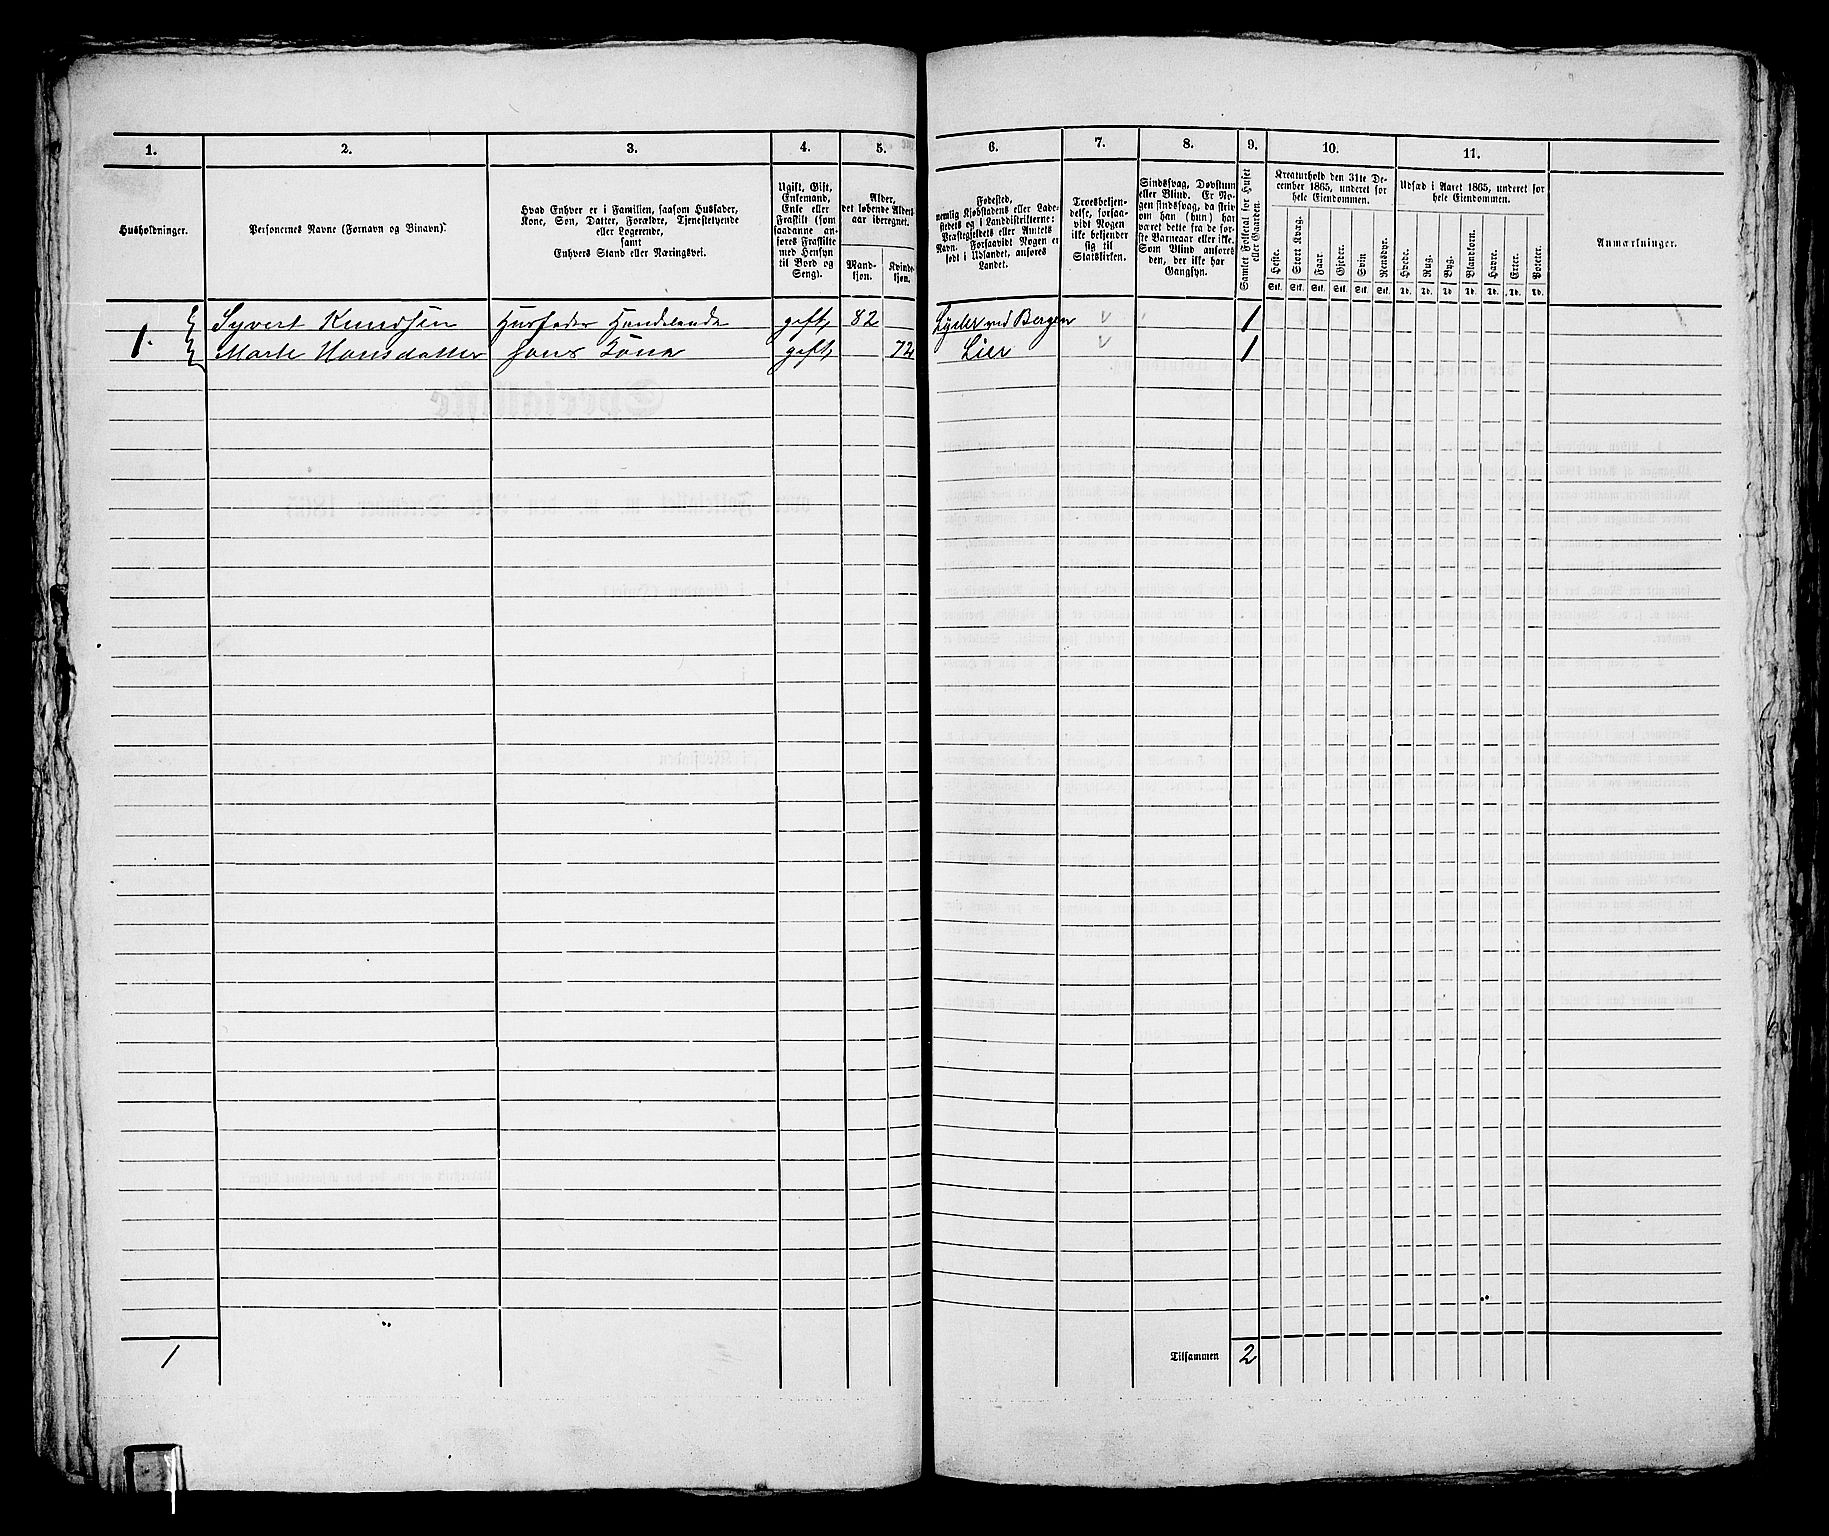 1. 2. 3. 4. 5. 6. 7. 8. 9. 10. 11.
Husholdninger.
Personernes Navne (Fornavn og Binavn).
Hvad Enhver er i Familien, saasom Husfader,
Kone, Søn, Datter, Forældre, Tjenestetyende
eller Logerende,
samt
Enhvers Stand eller Næringsvei.
Ugift, Gift,
Enkemand,
Enke eller
Fraskilt (som
saadanne an-
føres Fraskilte
med Hensyn
til Bord og
Seng).
Alder,
det løbende Alders-
aar iberegnet.
Mand-
kjøn.
Kvinde-
kjøn.
Fødested,
nemlig Kjøbstadens eller Lade-
stedets og i Landdistrikterne:
Præstegjeldets eller Amtets
Navn. Forsaavidt Nogen er
født i Udlandet, anføres
Landet.
Troesbekjen-
delse, forsaa-
vidt Nogen
ikke bekjender
sig til
Statskirken.
Sindssvag, Døvstum
eller Blind. Er No-
gen sindssvag, da skriv
om han (hun) har
været dette fra de før-
ste Barneaar eller ikke.
Som Blind anføres
den, der ikke har
Gangsyn.
Samlet Folketal for Huset
eller Gaarden.
Kreaturhold den 31te De-
cember 1865, underet for
hele Eiendommen.
Heste. Stort Kvæg. Faar. Gjeder. Svin Rensdyr.
Stk. Stk. Stk. Stk. Stk. Stk.
Udsæd i Aaret 1865, underet for
hele Eiendommen.
Hvede. Rug. Byg. Blandkorn. Havre. Erter. Poteter.
Td. Td. Td Td. Td. Td. Td.
Anmærkninger.
1. Syvert Knudsen Husfader Handelende gift 82 ved Bergen 1
Marte Hansdatter hans Kone gift 72 Lier 1
1 Tilsammen 2